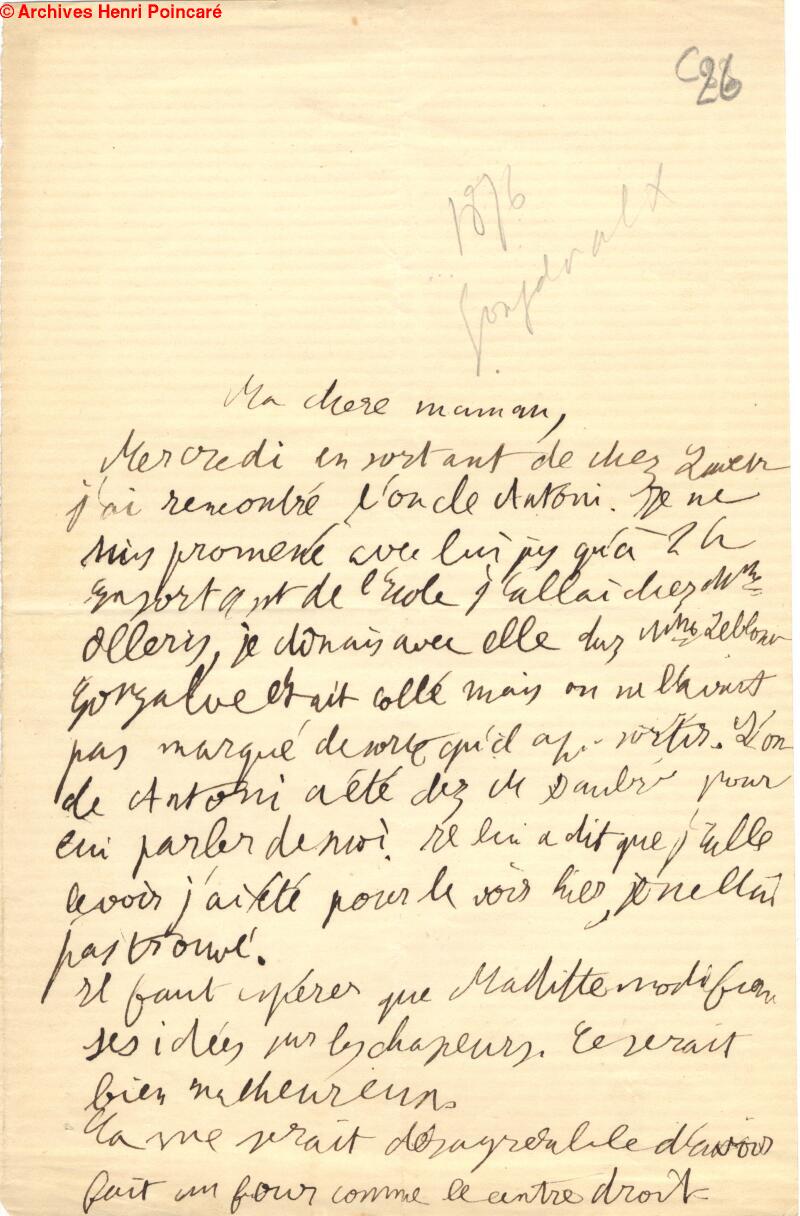 © Archives Henri Poincaré
C 26
1876
Ma chere maman,
Mercredi en sortant de chez
j'ai rencontré l'oncle Antoni. Je me
suis promené avec lui jusqu'à 2 h
En sortant de l'Ecole j'allai chez Mme
Olleris, je dinais avec elle chez Mme Leblanc
Gonzalve était collé mais on ne l'avait
pas marqué de sorte qu'il a pu sortir. L'on
cle Antoni a été chez M Daubré pour
lui parler de moi. Il lui a dit que j'aille
le voir j'ai été pour le voir hier, je ne l'ai
pas trouvé.
Il faut espérer que modifiera
ses idées sur les chapeurs. Ce serait
bien malheureux.
Ca me serait désagréable d'avoir
fait un four comme le centre droit